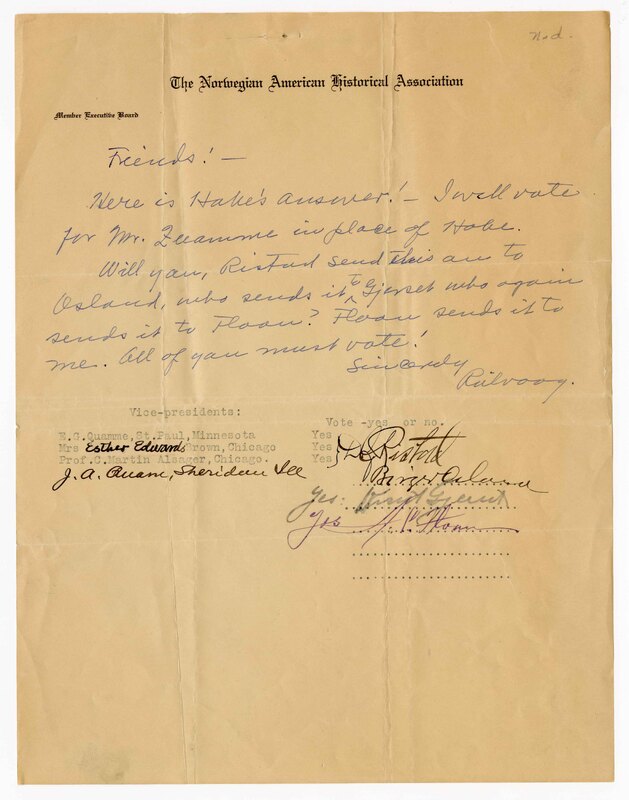 N.d.
The Norwegian American Historical Association
Member Executive Board
Friends! —
Here is Hobe's answer! — I will vote
for Mr. Quamme in place of Hobe.
Will you, Ristad send this on to
Osland, who sends it to Gjerset who again
sends it to Floan? Floan sends it to
me. All of you must vote!
Sincerely
Rölvaag.
Vice-presidents:
Vote -yes or no.
E.G.Quamme, St.Paul, Minnesota Yes
Mrs Esther Edwards Brown, Chicago Yes
Prof.C.Martin Alsager, Chicago. Yes } D G Ristad
J. A. Quam, Sheridan Ill Birger Osland
Yes: Knut Gjerset
Yes Floan